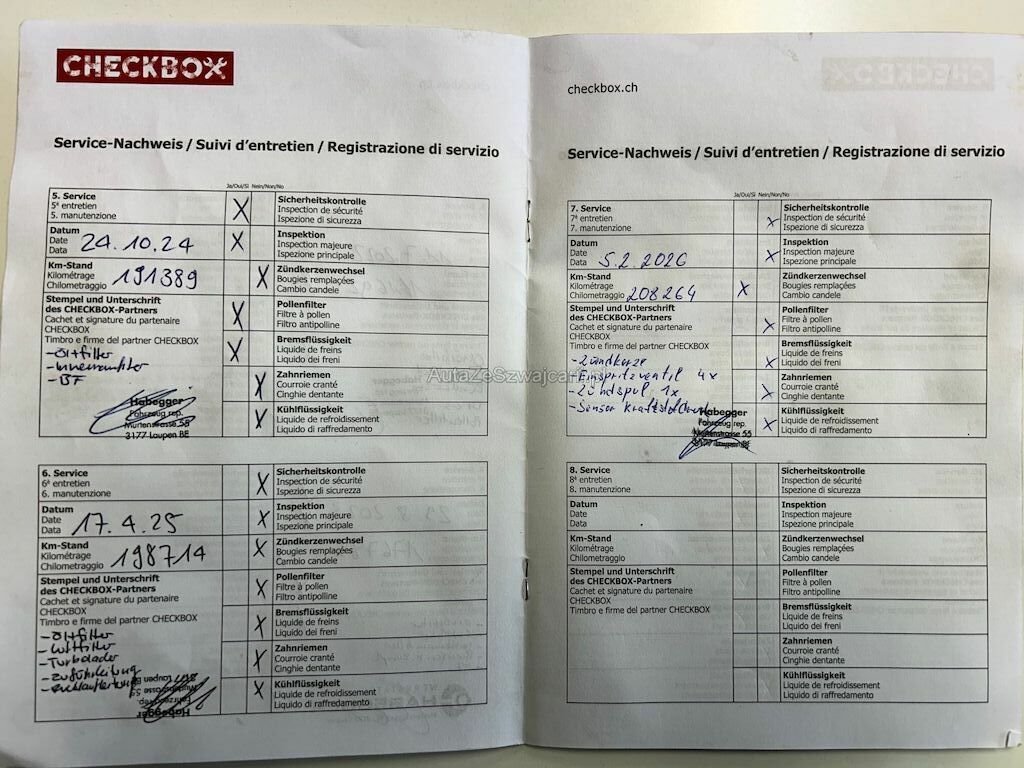 CHECKBOX
Service-Nachweis / Suivi d'entretien / Registrazione di servizio
Ja/Oui/Sì Nein/Non/No
5. Service
5ᵉ entretien
5. manutenzione
X
Sicherheitskontrolle
Inspection de sécurité
Ispezione di sicurezza
Datum
Date
Data
24.10.24
X
Inspektion
Inspection majeure
Ispezione principale
Km-Stand
Kilométrage
Chilometraggio
191389
X
Zündkerzenwechsel
Bougies remplaçées
Cambio candele
Stempel und Unterschrift
des CHECKBOX-Partners
Cachet et signature du partenaire
CHECKBOX
Timbro e firme del partner CHECKBOX
X
Pollenfilter
Filtre à pollen
Filtro antipolline
X
Bremsflüssigkeit
Liquide de freins
Liquido dei freni
X
Zahnriemen
Courroie cranté
Cinghie dentante
X
Kühlflüssigkeit
Liquide de refroidissement
Liquido di raffredamento
- Öl+filter
- Innenraumfilter
- BF
Habegger
Fahrzeug rep.
Murtenstrasse 55
3177 Laupen BE
6. Service
6ᵉ entretien
6. manutenzione
X
Sicherheitskontrolle
Inspection de sécurité
Ispezione di sicurezza
Datum
Date
Data
17.4.25
X
Inspektion
Inspection majeure
Ispezione principale
Km-Stand
Kilométrage
Chilometraggio
198714
X
Zündkerzenwechsel
Bougies remplaçées
Cambio candele
Stempel und Unterschrift
des CHECKBOX-Partners
Cachet et signature du partenaire
CHECKBOX
Timbro e firme del partner CHECKBOX
X
Pollenfilter
Filtre à pollen
Filtro antipolline
X
Bremsflüssigkeit
Liquide de freins
Liquido dei freni
X
Zahnriemen
Courroie cranté
Cinghie dentante
X
Kühlflüssigkeit
Liquide de refroidissement
Liquido di raffredamento
- Öl+filter
- Luftfilter
- Turbolader
- Zuführleitung
- Rücklaufleitung
Habegger
Fahrzeug rep.
Murtenstrasse 55
3177 Laupen BE
checkbox.ch
Service-Nachweis / Suivi d'entretien / Registrazione di servizio
Ja/Oui/Sì Nein/Non/No
7. Service
7ᵉ entretien
7. manutenzione
X
Sicherheitskontrolle
Inspection de sécurité
Ispezione di sicurezza
Datum
Date
Data
5.2.2026
X
Inspektion
Inspection majeure
Ispezione principale
Km-Stand
Kilométrage
Chilometraggio
208264
X
Zündkerzenwechsel
Bougies remplaçées
Cambio candele
Stempel und Unterschrift
des CHECKBOX-Partners
Cachet et signature du partenaire
CHECKBOX
Timbro e firme del partner CHECKBOX
X
Pollenfilter
Filtre à pollen
Filtro antipolline
X
Bremsflüssigkeit
Liquide de freins
Liquido dei freni
X
Zahnriemen
Courroie cranté
Cinghie dentante
X
Kühlflüssigkeit
Liquide de refroidissement
Liquido di raffredamento
- Zündkerze
- Einspritzventil 4x
- Zündspul 1x
- Sensor
Habegger
Fahrzeug rep.
Murtenstrasse 55
3177 Laupen BE
8. Service
8ᵉ entretien
8. manutenzione
Sicherheitskontrolle
Inspection de sécurité
Ispezione di sicurezza
Datum
Date
Data
Inspektion
Inspection majeure
Ispezione principale
Km-Stand
Kilométrage
Chilometraggio
Zündkerzenwechsel
Bougies remplaçées
Cambio candele
Stempel und Unterschrift
des CHECKBOX-Partners
Cachet et signature du partenaire
CHECKBOX
Timbro e firme del partner CHECKBOX
Pollenfilter
Filtre à pollen
Filtro antipolline
Bremsflüssigkeit
Liquide de freins
Liquido dei freni
Zahnriemen
Courroie cranté
Cinghie dentante
Kühlflüssigkeit
Liquide de refroidissement
Liquido di raffredamento